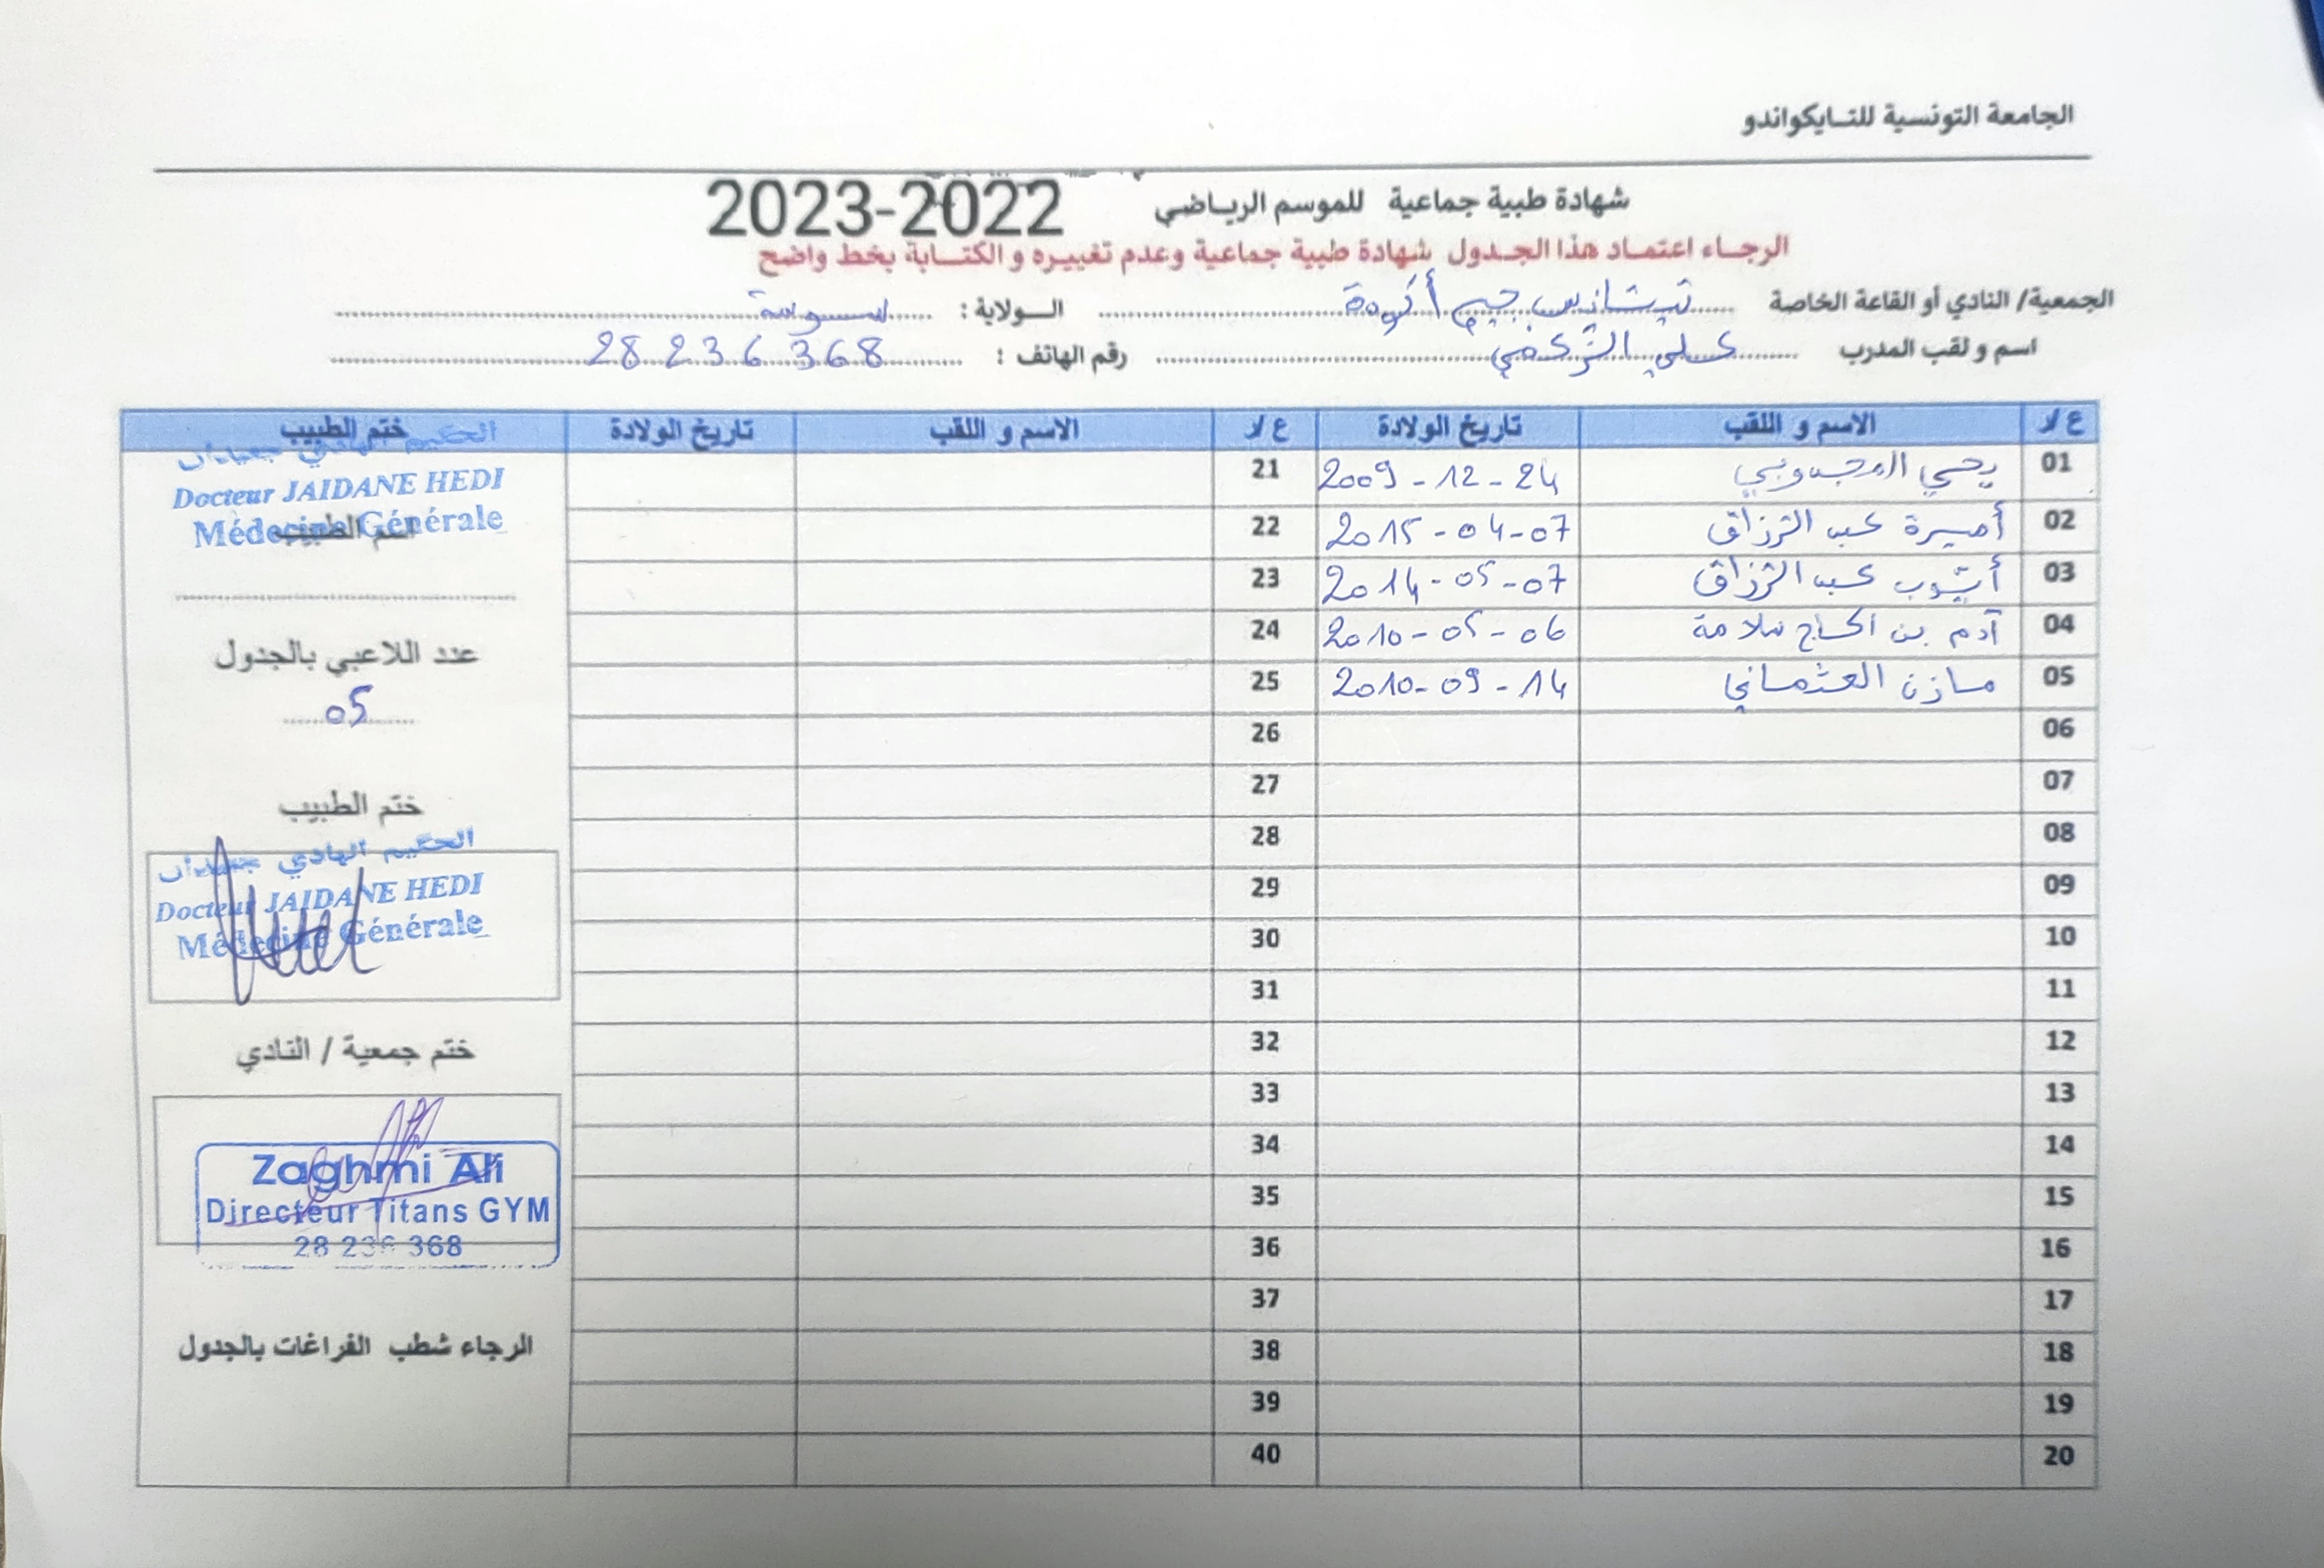 الجامعة التونسية للتايكواندو
شهادة طبية جماعية للموسم الرياضي 2022-2023
الرجاء اعتماد هذا الجدول شهادة طبية جماعية وعدم تغييره و الكتابة بخط واضح
الجمعية/ النادي أو القاعة الخاصة تيتانس جيم أكودة الولاية : سوسة
اسم و لقب المدرب علي الزغمي رقم الهاتف : 28 236 368
ع/د الاسم و اللقب تاريخ الولادة ع/د الاسم و اللقب تاريخ الولادة ختم الطبيب
01 يحي المجدوبي 2009-12-24 21
02 أميرة عبد الرزاق 2015-04-07 22
03 أيوب عبد الرزاق 2014-05-07 23
04 آدم بن الحاج سلامة 2010-05-06 24
05 مازن العثماني 2010-09-14 25
06 26
07 27
08 28
09 29
10 30
11 31
12 32
13 33
14 34
15 35
16 36
17 37
18 38
19 39
20 40
الحكيم الهادي جعيدان
Docteur JAIDANE HEDI
Médecine Générale
ختم الطبيب
عدد اللاعبي بالجدول
05
ختم الطبيب
الحكيم الهادي جعيدان
Docteur JAIDANE HEDI
Médecine Générale
ختم جمعية / النادي
Zaghmi Ali
Directeur Titans GYM
28 236 368
الرجاء شطب الفراغات بالجدول